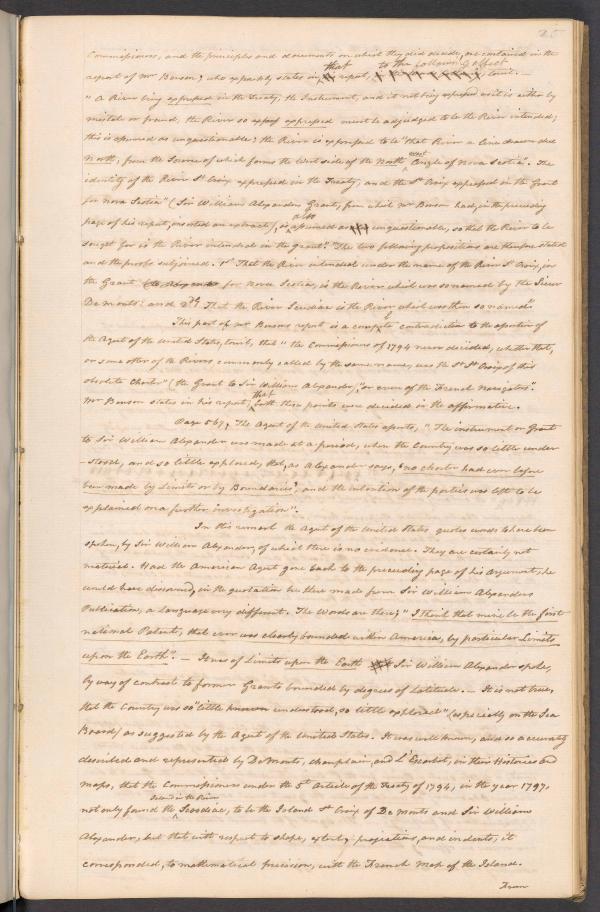 25
Commissioners, and the principles and documents on which they did decide, are contained in the
report of Mr Benson, who expressly states in report, that to the following effect towit. —
"A River being expressed in the Treaty, the Instrument, and it not being expressed as it is either by
mistake or fraud, the River so expressed must be adjudged to be the River intended;
this is assumed as unquestionable; the River is expressed to be "that River a line drawn due
North, from the Source of which forms the West side of the North west Angle of Nova Scotia". The
identity of the River St Croix expressed in the Treaty, and the St Croix expressed in the Grant
for Nova Scotia" (Sir William Alexanders Grant, from which Mr Benson had, in the preceeding
page of his report, inserted an extract), "is also assumed as unquestionable, so that the River to be
sought for is the River intended in the grant. "The two following propositions are therefore stated
and the proofs subjoined. 1st That the River intended under the name of the River St Croix, in
the Grant for Nova Scotia, is the River which was so named by the Sieur
De Monts: and 2dly That the River Scudiac is the River which was then so named."
This part of Mr Bensons report is a complete contradiction to the assertion of
the Agent of the United States, towit, that "the Commissioners of 1794 never decided, whether that,
or some other of the Rivers commonly called by the same name, was the St Croix of this
obsolete Charter" (the Grant to Sir William Alexander), "or even of the French Navigators".
Mr Benson states in his report, that both these points were decided in the affirmative.
Page 567, The Agent of the United States asserts, "The instrument or Grant
to Sir William Alexander was made at a period, when the Country was so little under
-stood, and so little explored, that, as Alexander says, 'no charter had ever before
been made by Limits or by Boundaries', and the intention of the parties was left to be
explained on a further investigation".
In this remark the Agent of the United States quotes words to have been
spoken, by Sir William Alexander, of which there is no evidence. They are certainly not
material. Had the American Agent gone back to the preceeding page of his Argument, he
would have discovered, in the quotation he there made from Sir William Alexanders
Publication, a language very different. The Words are these, "I think that mine be the first
national Patent, that ever was clearly bounded within America, by particular Limits
upon the Earth". — It was of Limits upon the Earth Sir William Alexander spoke,
by way of contrast to former Grants bounded by degrees of Latitude. — It is not true,
that the Country was so "little known understood, so little explored" (especially on the Sea
Board) as suggested by the Agent of the United States. It was well known, and so accurately
described and represented by De Monts, Champlain, and L'Escarbot, in their Histories and
maps, that the Commissioners under the 5th Article of the Treaty of 1794, in the year 1797,
not only found the Island in the River Scoodiac, to be the Island St Croix of De Monts and Sir William
Alexander, but that with respect to shape, extent, projections, and indents, it
corresponded, to mathematical precision, with the French Map of the Island.
From